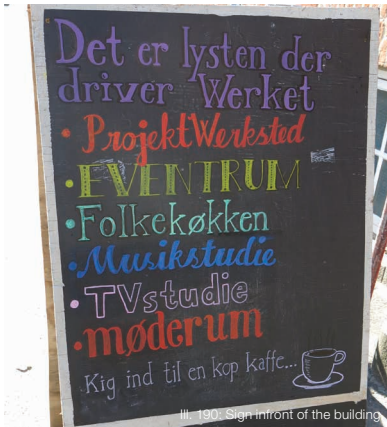 Det er lysten der
driver Werket
• ProjektWerksted
• EVENTRUM
• Folkekøkken
• Musikstudie
• TVstudie
• møderum
Kig ind til en kop kaffe...
Ill. 190: Sign infront of the building